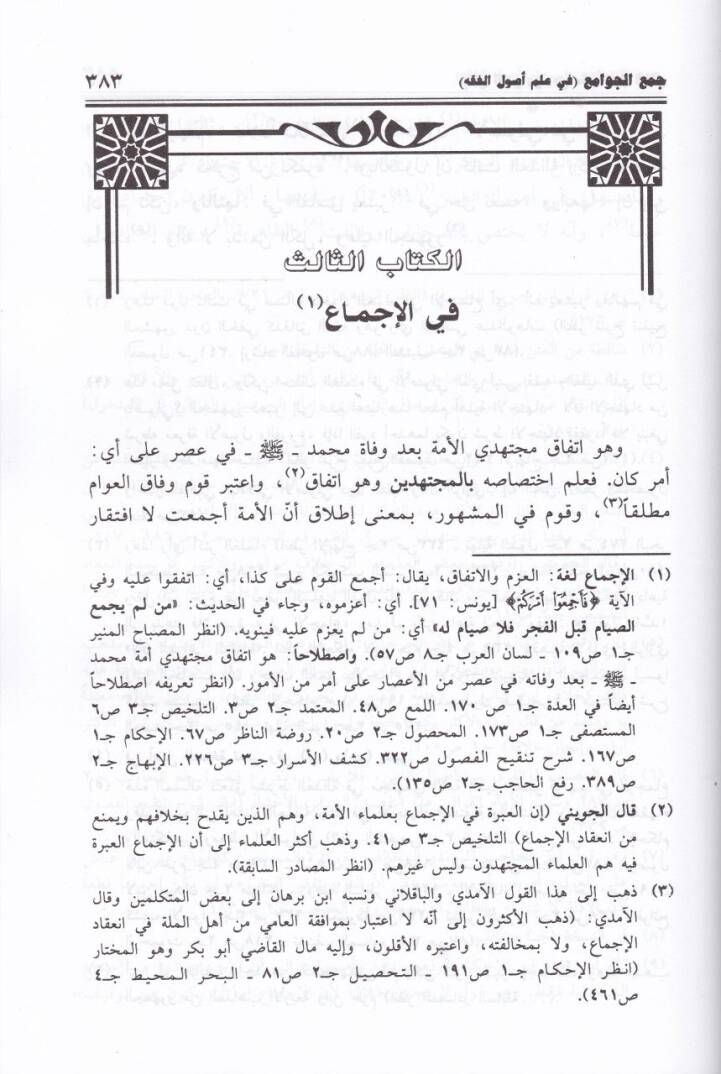 جمع الجوامع (في علم أصول الفقه)
٣٨٣
الكتاب الثالث
في الإجماع(١)
وهو اتفاق مجتهدي الأمة بعد وفاة محمد ـ ﷺ ـ في عصر على أي:
أمر كان. فعلم اختصاصه بالمجتهدين وهو اتفاق(٢)، واعتبر قوم وفاق العوام
مطلقاً(٣)، وقوم في المشهور، بمعنى إطلاق أنّ الأمة أجمعت لا افتقار
(١) الإجماع لغة: العزم والاتفاق، يقال: أجمع القوم على كذا، أي: اتفقوا عليه وفي
الآية ﴿فَأَجْمِعُوٓا۟ أَمْرَكُمْ﴾ [يونس: ٧١]. أي: أعزموه، وجاء في الحديث: «من لم يجمع
الصيام قبل الفجر فلا صيام له» أي: من لم يعزم عليه فينويه. (انظر المصباح المنير
جـ١ ص١٠٩ - لسان العرب جـ٨ ص٥٧). واصطلاحاً: هو اتفاق مجتهدي أمة محمد
ـ ﷺ ـ بعد وفاته في عصر من الأعصار على أمر من الأمور. (انظر تعريفه اصطلاحاً
أيضاً في العدة جـ١ ص١٧٠. اللمع ص٤٨. المعتمد جـ٢ ص٣. التلخيص جـ٣ ص٦
المستصفى جـ١ ص١٧٣. المحصول جـ٢ ص٢٠. روضة الناظر ص٦٧. الإحكام جـ١
ص١٦٧. شرح تنقيح الفصول ص٣٢٢. كشف الأسرار جـ٣ ص٢٢٦. الإبهاج جـ٢
ص٣٨٩. رفع الحاجب جـ٢ ص١٣٥).
(٢) قال الجويني (إن العبرة في الإجماع بعلماء الأمة، وهم الذين يقدح بخلافهم ويمنع
من انعقاد الإجماع) التلخيص جـ٣ ص٤١. وذهب أكثر العلماء إلى أن الإجماع العبرة
فيه هم العلماء المجتهدون وليس غيرهم. (انظر المصادر السابقة).
(٣) ذهب إلى هذا القول الآمدي والباقلاني ونسبه ابن برهان إلى بعض المتكلمين وقال
الآمدي: (ذهب الأكثرون إلى أنّه لا اعتبار بموافقة العامي من أهل الملة في انعقاد
الإجماع، ولا بمخالفته، واعتبره الأقلون، وإليه مال القاضي أبو بكر وهو المختار
(انظر الإحكام جـ١ ص١٩١ - التحصيل جـ٢ ص٨١ـ البحر المحيط جـ٤
ص٤٦١).